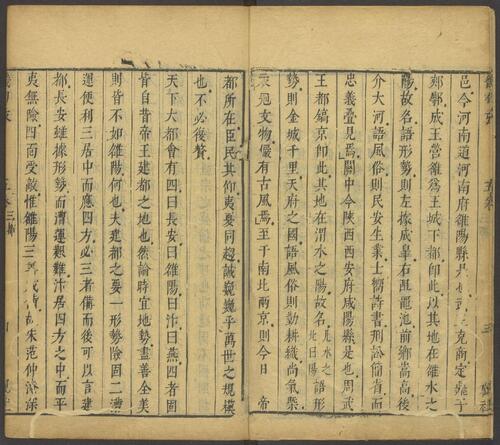 邑今河南道河南府雒陽縣是也
郟鄏成王營雒為王城下都卽此以其地在雒水之
陽故名語形勢則左據成臯右阻黽池前鄉嵩高後
介大河語風俗則民安生業士嚮詩書刑訟簡省而
忠義疊見焉關中今陜西西安府咸陽縣是也周武
王都鎬京卽此其地在渭水之陽故名凡水之北曰陽語形
勢則金城千里天府之國語風俗則勤耕織尚氣槩
衣冠文物儼有古風焉至于南北兩京則今日 帝
都所在臣民其仰夷夏同趨誠巍巍乎萬世之規模
也不必後贅
天下大都會有四曰長安曰雒陽曰汴曰燕四者固
皆自昔帝王建都之地也然論時宜地勢盡善全美
則皆不如雒陽何也夫建都之要一形勢險固二漕
運便利三居中而應四方必三者備而後可以言建
都長安雖據形勢而漕運艱難汴居四方之中而平
夷無險四面受敵惟雒陽三